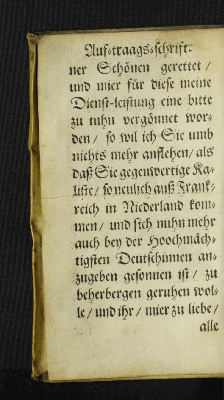 Auf-traags-schrift.
ner Schönen gerettet /
und mier für diese meine
Dienst-leistung eine bitte
zu tuhn vergönnet wor-
den / so wil ich Sie umb
nichts mehr anflehen / als
daß Sie gegenwertige Ka-
liste / so neulich auß Frank-
reich in Niederland kom-
men / und sich nuhn mehr
auch bey der Hoochmäch-
tigsten Deutschinnen an-
zugeben gesonnen ist / zu
beherbergen geruhen wol-
le / und ihr / mier zu liebe /
alle